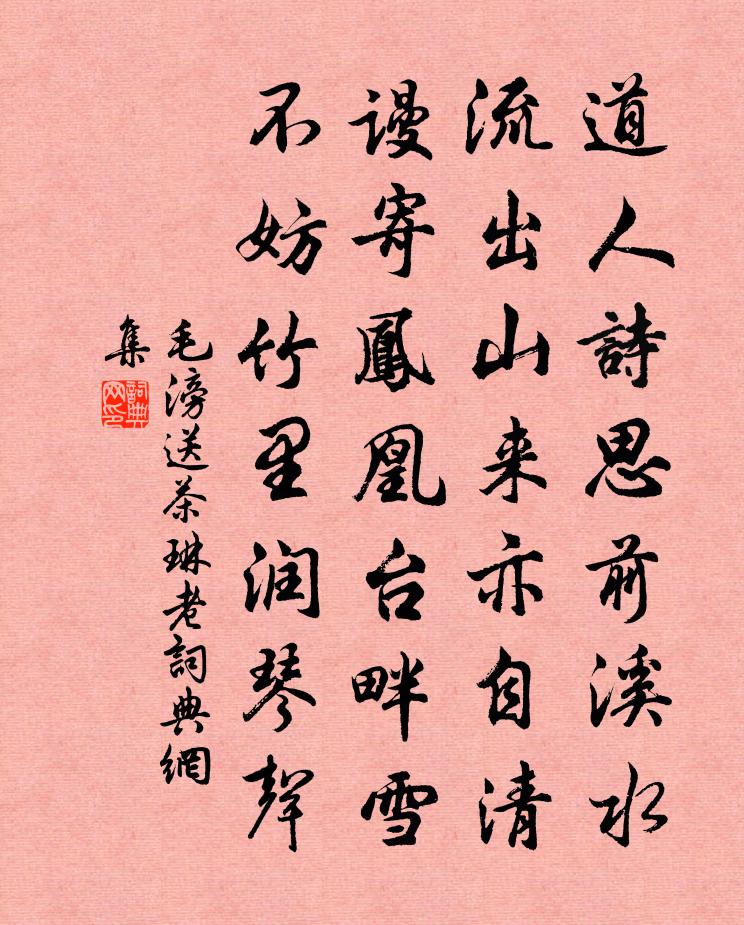 道人詩思前溪水
流出山来亦自清
謾寄鳳凰台畔雪
不妨竹里润琴聲
毛滂送茶琳老詞典網
集
詞典
网印